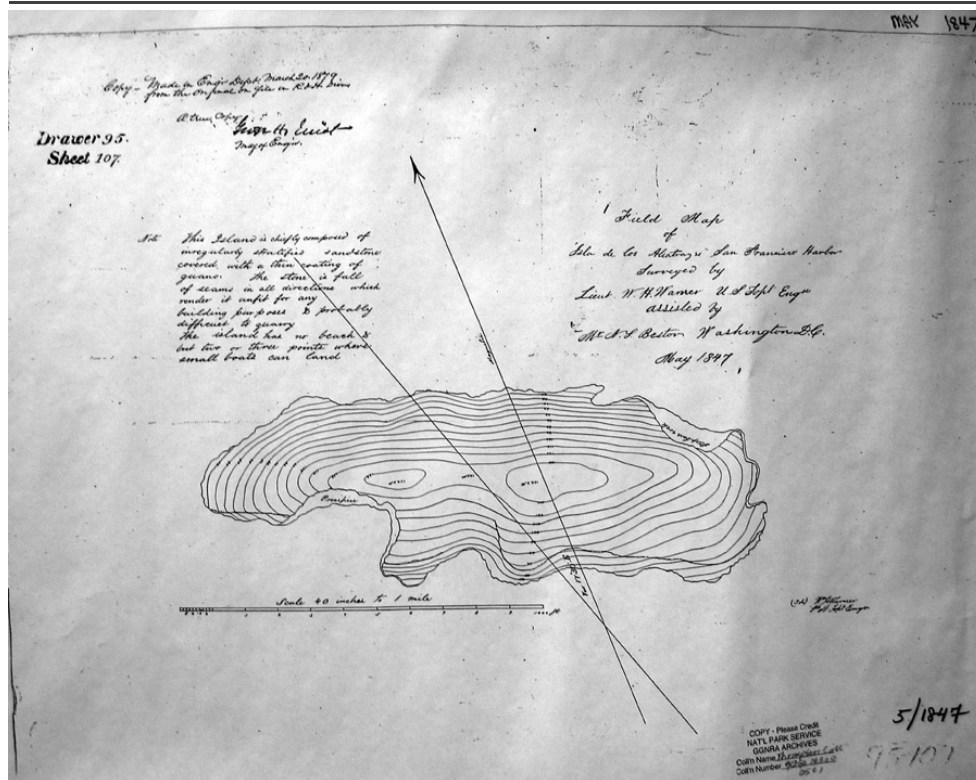 MAY 1847
Copy - Made in Engr Dept, March 20, 1879
from the Original on file in
A true Copy
Maj of Engrs.
Drawer 95.
Sheet 107.
Note This Island is chiefly composed of
irregularly stratified sandstone
covered with a thin coating of
guano. The stone is full
of seams in all directions which
render it unfit for any
building purposes & probably
difficult to quarry
The island has no beach &
but two or three points where
small boats can land
Field Map
of
Isla de los Alcatrazes San Francisco Harbor
Surveyed by
Lieut. W. H. Warner U S Topl Engrs
assisted by
Mr. Bestor Washington D.C.
May 1847
Precipice
Scale 40 inches to 1 mile
5/1847
COPY - Please Credit
NAT'L PARK SERVICE
GGNRA ARCHIVES
Coll'n Name Thompson Coll
Coll'n Number